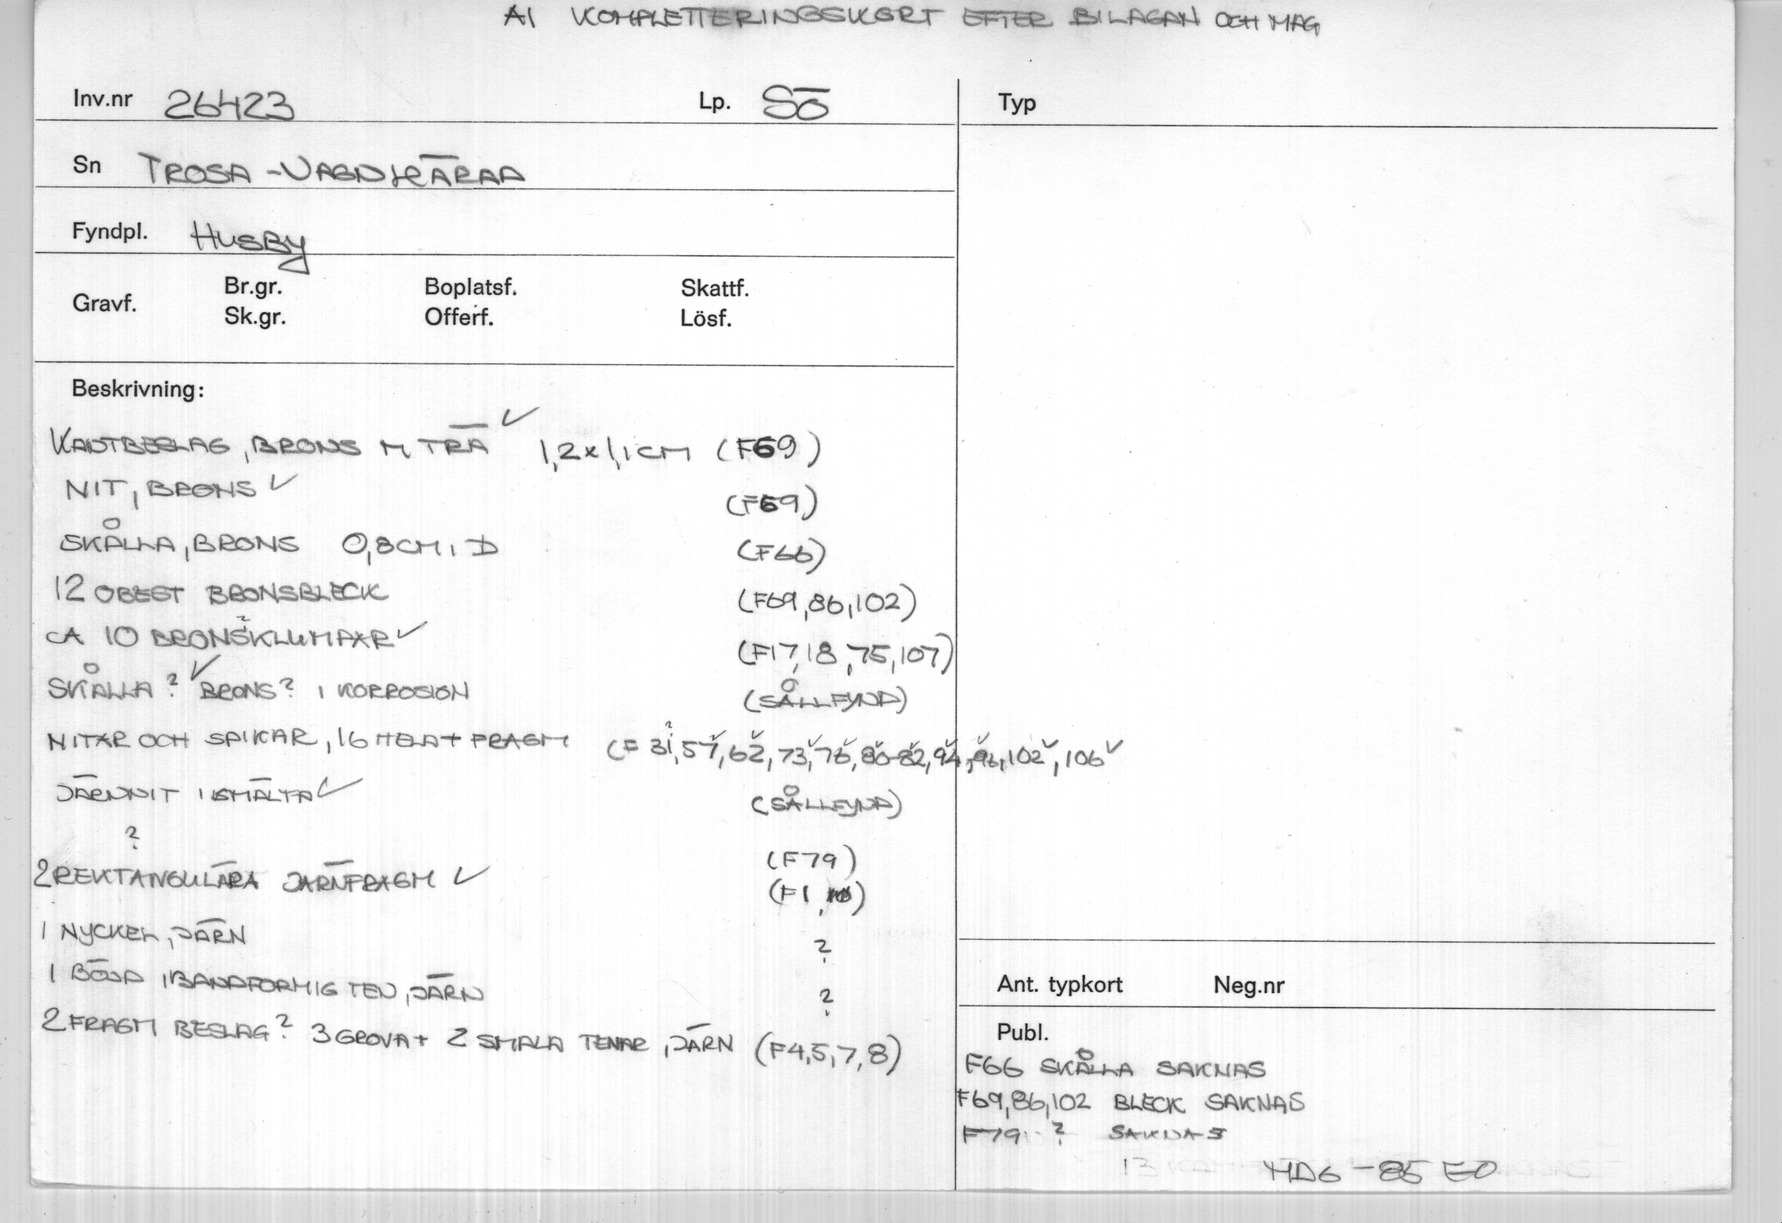 A1 KOMPLETTERINGSKORT EFTER BILAGAN OCH MAG
Inv.nr 26423 Lp. SÖ
Typ
Sn TROSA-VAGNHÄRAD
Fyndpl. HUSBY
Gravf. Br.gr. Boplatsf. Skattf.
Sk.gr. Offerf. Lösf.
Beskrivning:
KANTBESLAG, BRONS M TRÄ ✓ 1,2x1,1 CM (F69)
NIT, BRONS ✓ (F69)
SKÅLLA, BRONS 0,8 CM I D (F66)
12 OBEST BRONSBLECK (F69,86,102)
CA 10 BRONSKLUMPAR ? ✓ (F17,18,75,107)
SKÅLLA? ✓ BRONS? I KORROSION (SÅLLFYND)
NITAR OCH SPIKAR, 16 HELA + FRAGM (F 31?,57✓,62✓,73✓,76✓,80-82✓,94✓,96✓,102✓,106✓
JÄRNNIT I SMÄLTA ✓ (SÅLLFYND)
? (F79)
2 REKTANGULÄRA JÄRNFRAGM ✓ (F1,
1 NYCKEL, JÄRN ?
1 BÖJD, BANDFORMIG TEN, JÄRN ?
2 FRAGM BESLAG? 3 GROVA + 2 SMALA TENAR, JÄRN (F4,5,7,8)
Ant. typkort Neg.nr
Publ.
F66 SKÅLLA SAKNAS
F69,86,102 BLECK SAKNAS
F79 ? SAKNAS
-85 EO